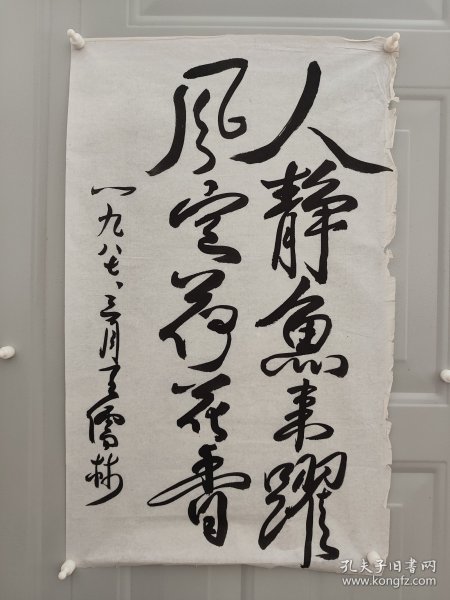 人静魚来躍
风定荷花香
一九八七、三月王儒林
孔夫子旧书网
www.kongfz.com